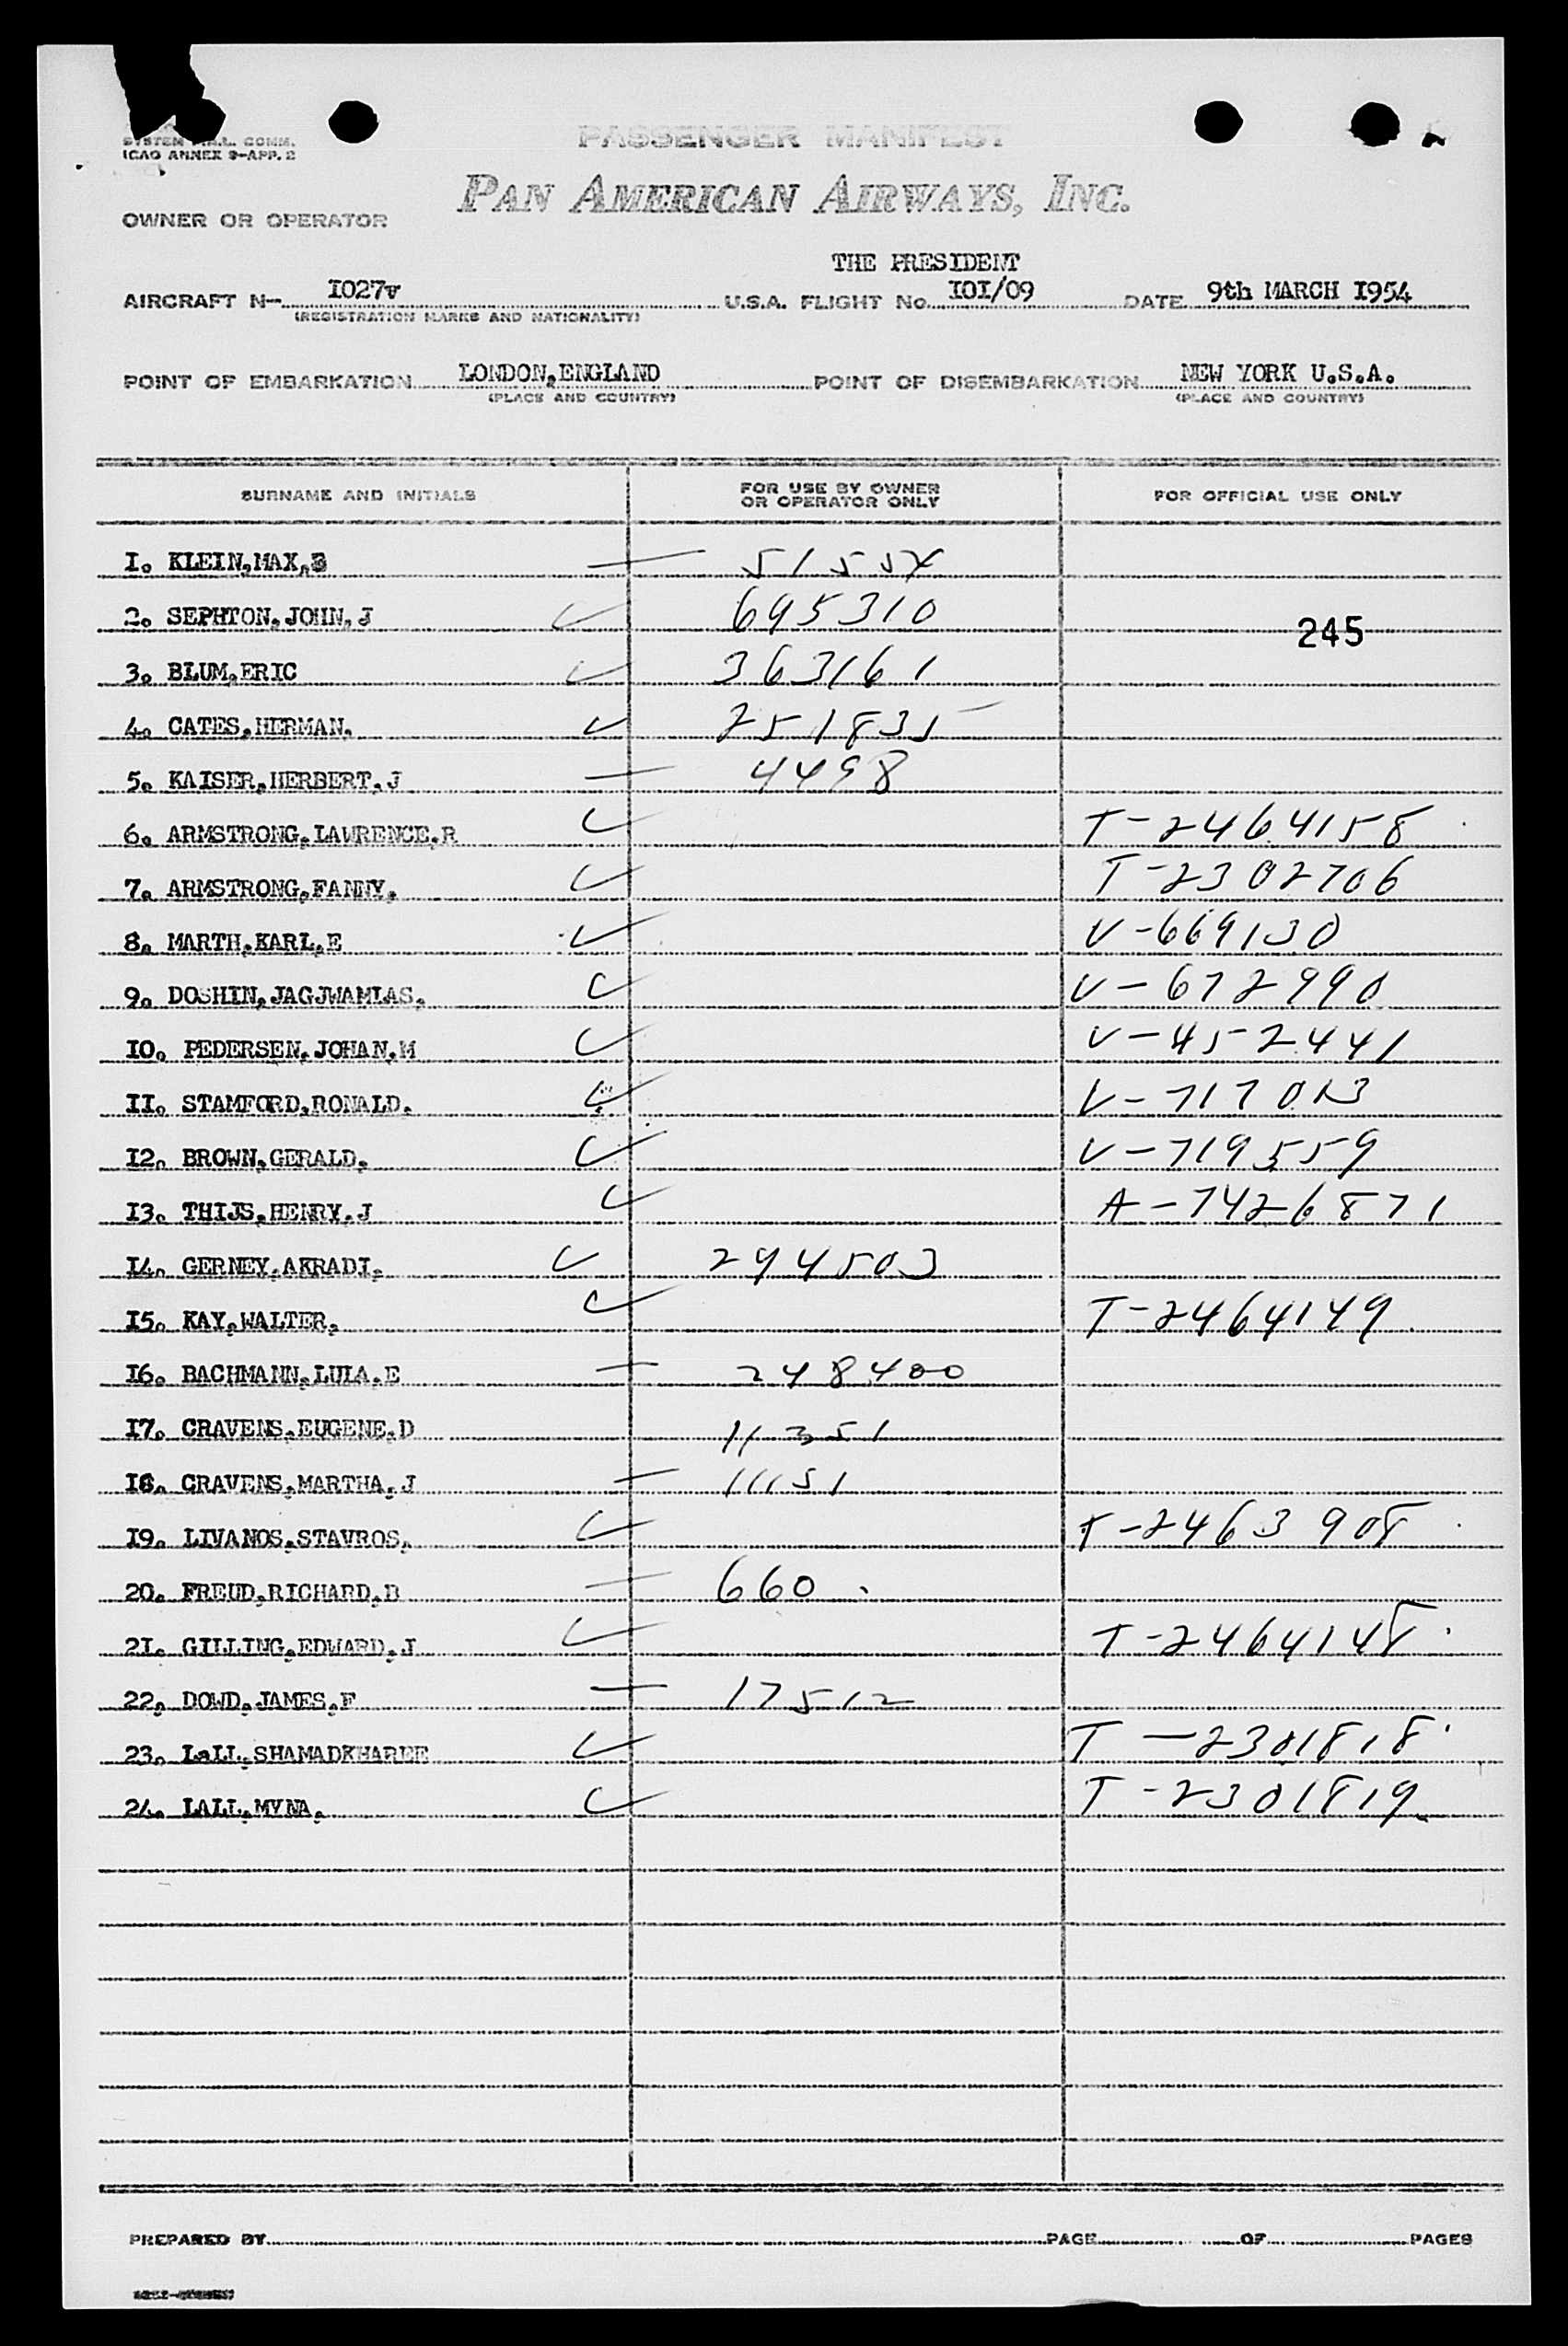 SYSTEM COMM.
ICAO ANNEX 9-APP. 2
PASSENGER MANIFEST
PAN AMERICAN AIRWAYS, INC.
OWNER OR OPERATOR
THE PRESIDENT
AIRCRAFT N- I027v U.S.A. FLIGHT No. IOI/09 DATE 9th MARCH I954
(REGISTRATION MARKS AND NATIONALITY)
POINT OF EMBARKATION LONDON,ENGLAND POINT OF DISEMBARKATION NEW YORK U.S.A.
(PLACE AND COUNTRY) (PLACE AND COUNTRY)
SURNAME AND INITIALS FOR USE BY OWNER OR OPERATOR ONLY FOR OFFICIAL USE ONLY
I. KLEIN,MAX,B
2. SEPHTON,JOHN,J 695310 245
3. BLUM,ERIC 363161
4. CATES,HERMAN. 251835
5. KAISER,HERBERT,J 4498
6. ARMSTRONG,LAWRENCE,R T-2464158
7. ARMSTRONG,FANNY. T-2302706
8. MARTH,KARL,E V-669130
9. DOSHIN,JAGJWAMIAS. V-672990
IO. PEDERSEN,JOHAN,M V-452441
II. STAMFORD,RONALD. V-717013
I2. BROWN,GERALD. V-719559
I3. THIJS,HENRY,J A-7426871
I4. GERNEY,AKRADI. 294503
I5. KAY,WALTER. T-2464149
I6. BACHMANN,LULA,E 248400
I7. CRAVENS,EUGENE,D 11351
I8. CRAVENS,MARTHA,J 11151
I9. LIVANOS,STAVROS. T-2463908
20. FREUD,RICHARD,B 660
2I. GILLING,EDWARD,J T-2464148
22. DOWD,JAMES,F 17512
23. LaLL,SHAMADKHAREE T-2301818
24. LALL,MYNA. T-2301819
PREPARED BY PAGE OF PAGES